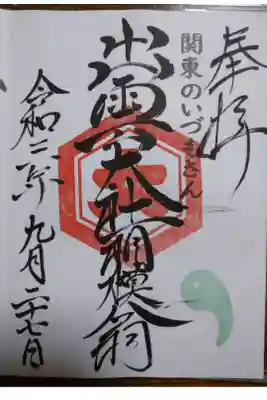 奉拝
関東のいづもさん
出雲大社相模分祠
令和二年九月二十七日